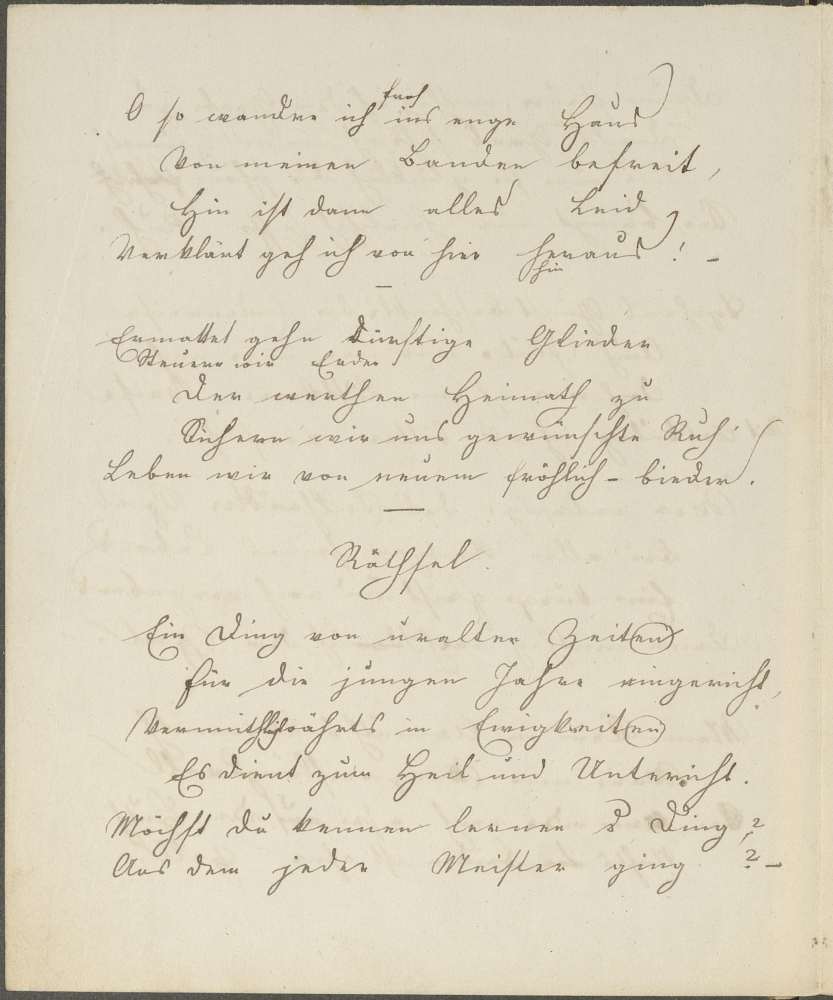 froh
O so wandre ich ins enge Haus
Von meinen Banden befreit,
Hin ist dann alles Leid
Verklärt geh ich von hier heraus! –
hin
Ermattet gehn dürftige Glieder
Steuern wir Erder
Der werthen Heimath zu
Sichern wir uns gewünschte Ruh'
Leben wir von neuem fröhlich – bieder.
Räthsel.
Ein Ding von uralter Zeit(en)
Für die jungen Jahre eingericht,
Vermuthlich währts in Ewigkeit(en)
Es dient zum Heil und Untericht.
Möchst du kennen lernen s Ding?
Aus dem jeder Meister ging ? –